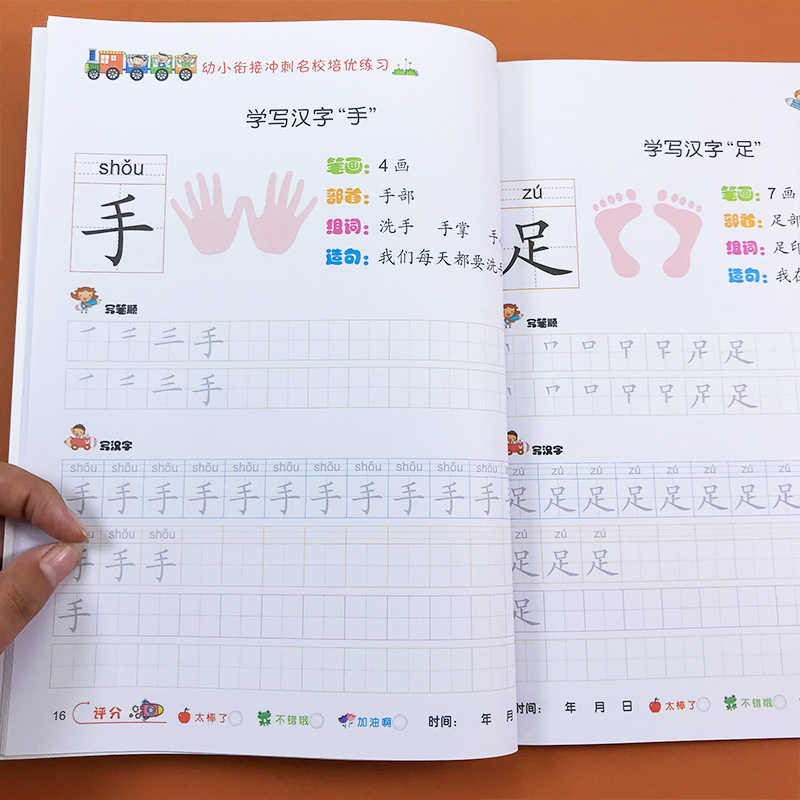 幼小衔接冲刺名校培优练习
学写汉字“手”
shǒu
手
笔画：4 画
部首：手部
组词：洗手 手掌 手
造句：我们每天都要洗手
写笔顺
一 二 三 手
一 二 三 手
写汉字
shǒu shǒu shǒu shǒu shǒu shǒu shǒu shǒu shǒu shǒu shǒu
手 手 手 手 手 手 手 手 手 手 手
shǒu shǒu
手 手 手
手
16 评分 太棒了 不错哦 加油啊 时间： 年 月
学写汉字“足”
zú
足
笔画：7 画
部首：足部
组词：足印
造句：我在
写笔顺
足
足
写汉字
zú zú zú zú zú zú zú zú
足 足 足 足 足 足 足 足
zú zú zú
足 足 足
足
时间： 年 月 日 太棒了 不错哦